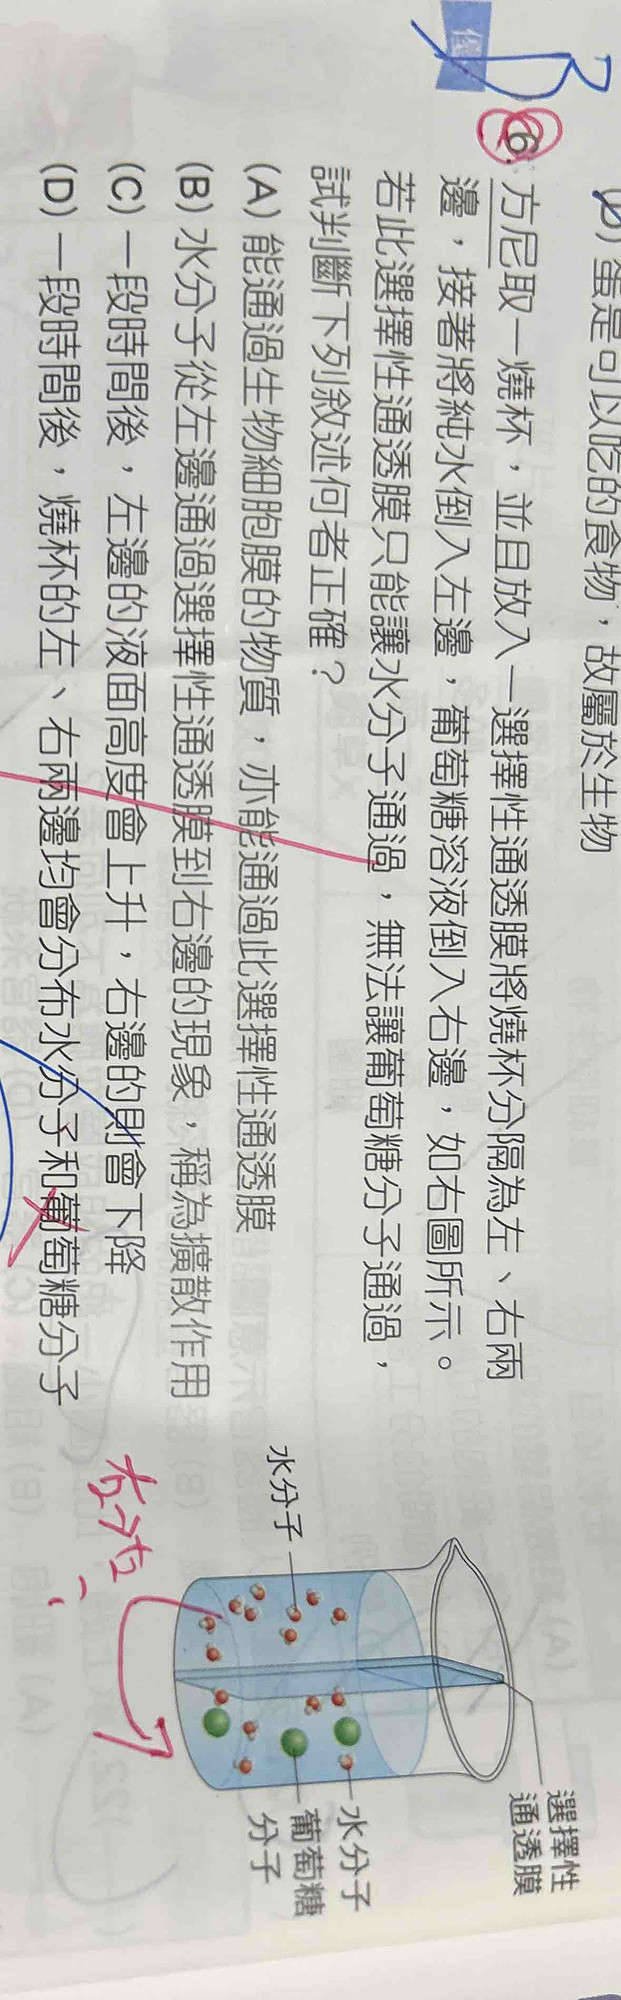 (D) 蛋是可以吃的食物，故屬於生物
B
6. 方尼取一燒杯，並且放入一選擇性通透膜將燒杯分隔為左、右兩
邊，接著將純水倒入左邊，葡萄糖溶液倒入右邊，如右圖所示。
若此選擇性通透膜只能讓水分子通過，無法讓葡萄糖分子通過，
試判斷下列敘述何者正確？
(A) 能通過生物細胞膜的物質，亦能通過此選擇性通透膜
(B) 水分子從左邊通過選擇性通透膜到右邊的現象，稱為擴散作用
(C) 一段時間後，左邊的液面高度會上升，右邊的則會下降
(D) 一段時間後，燒杯的左、右兩邊均會分布水分子和葡萄糖分子
選擇性
通透膜
水分子
水分子
葡萄糖
分子